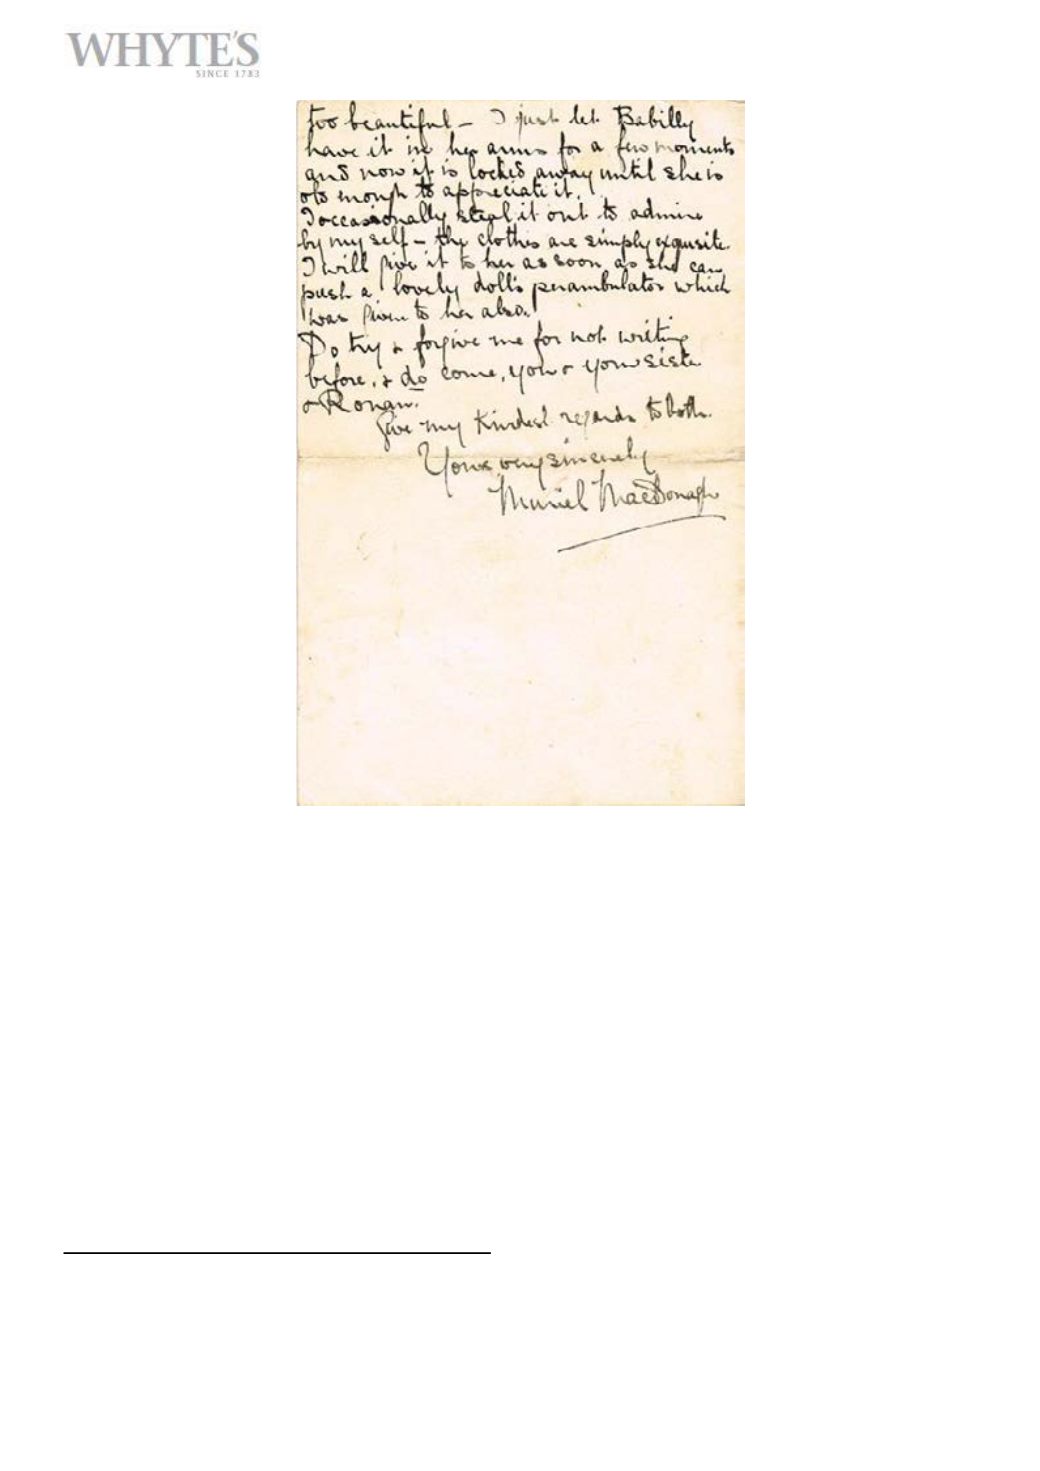 WHYTE'S
SINCE 1783
too beautiful – I just let Babilly
have it in her arms for a few moments
and now it is locked away until she is
old enough to appreciate it.
I occasionally steal it out to admire
by myself – the clothes are simply exquisite.
I will give it to her as soon as she can
push a lovely doll's perambulator which
was given to her also.
Do try & forgive me for not writing
before, & do come, you & your sister
& Ronan.
Give my kindest regards to both.
Yours very sincerely
Muriel MacDonagh